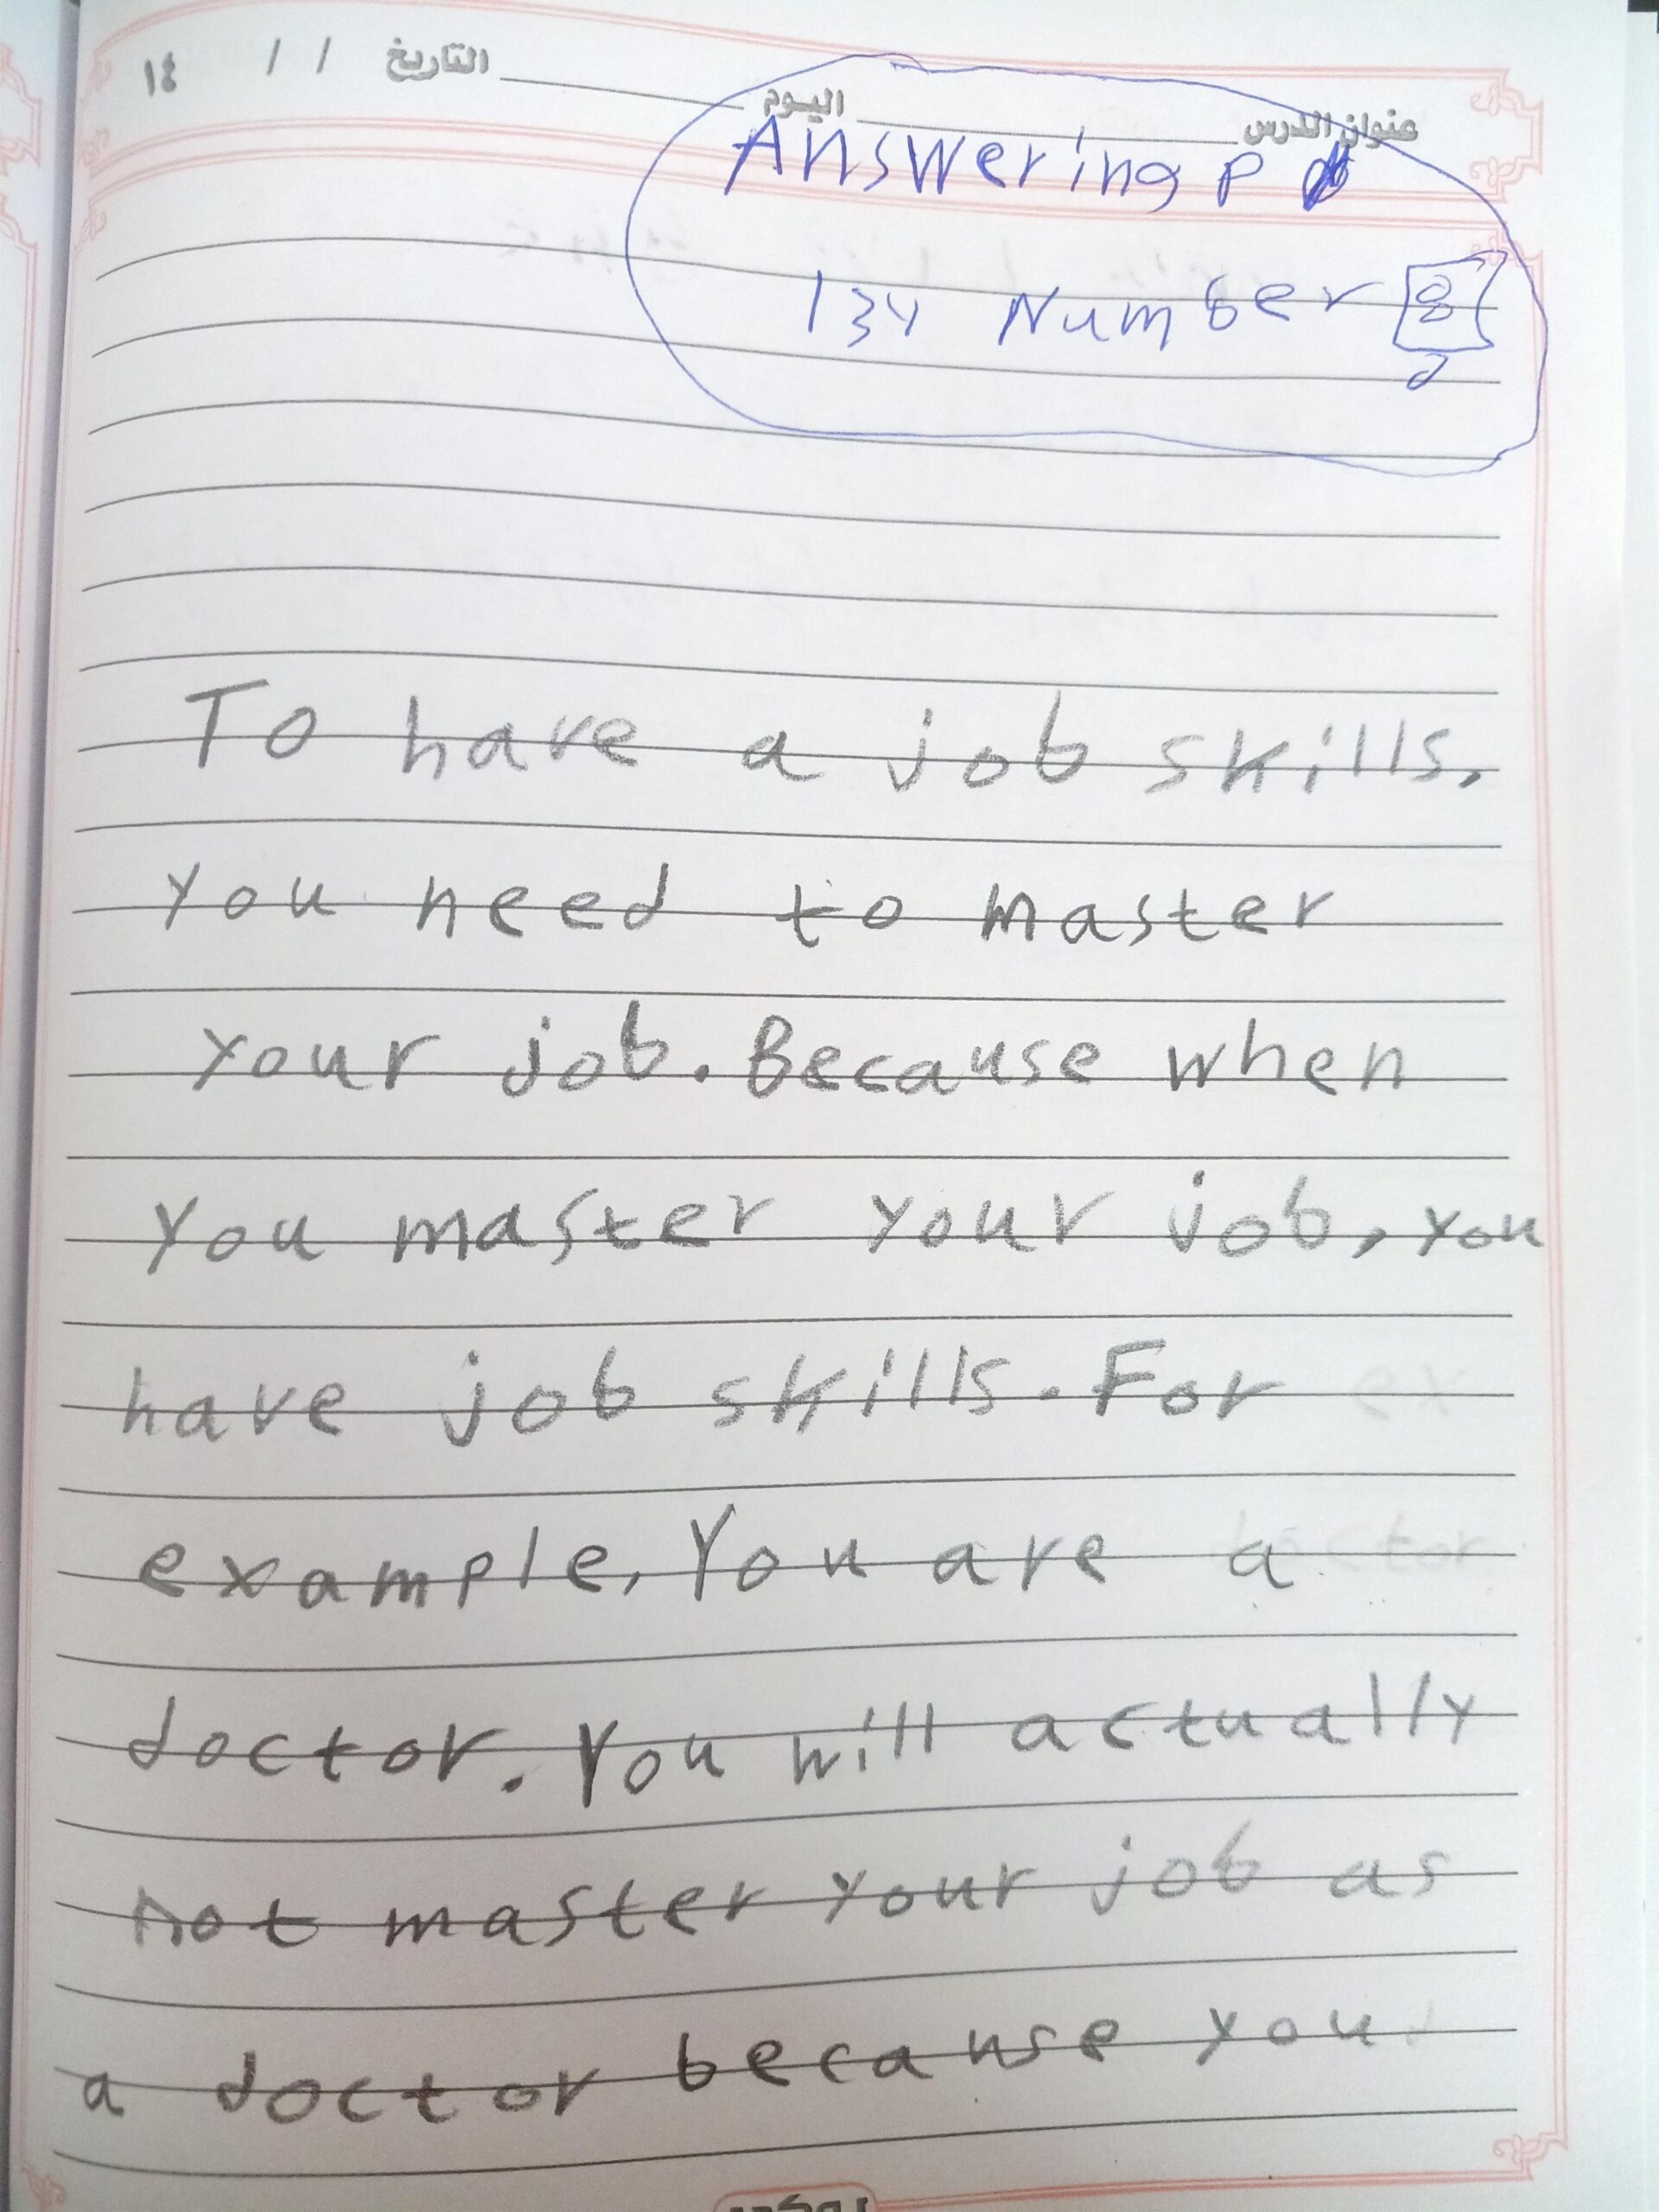 عنوان الدرس اليوم التاريخ / / ١٤
Answering P
134 Number 8
To have a job skills,
you need to master
your job. Because when
you master your job, you
have job skills. For
example, You are a
doctor. You will actually
not master your job as
a doctor because you